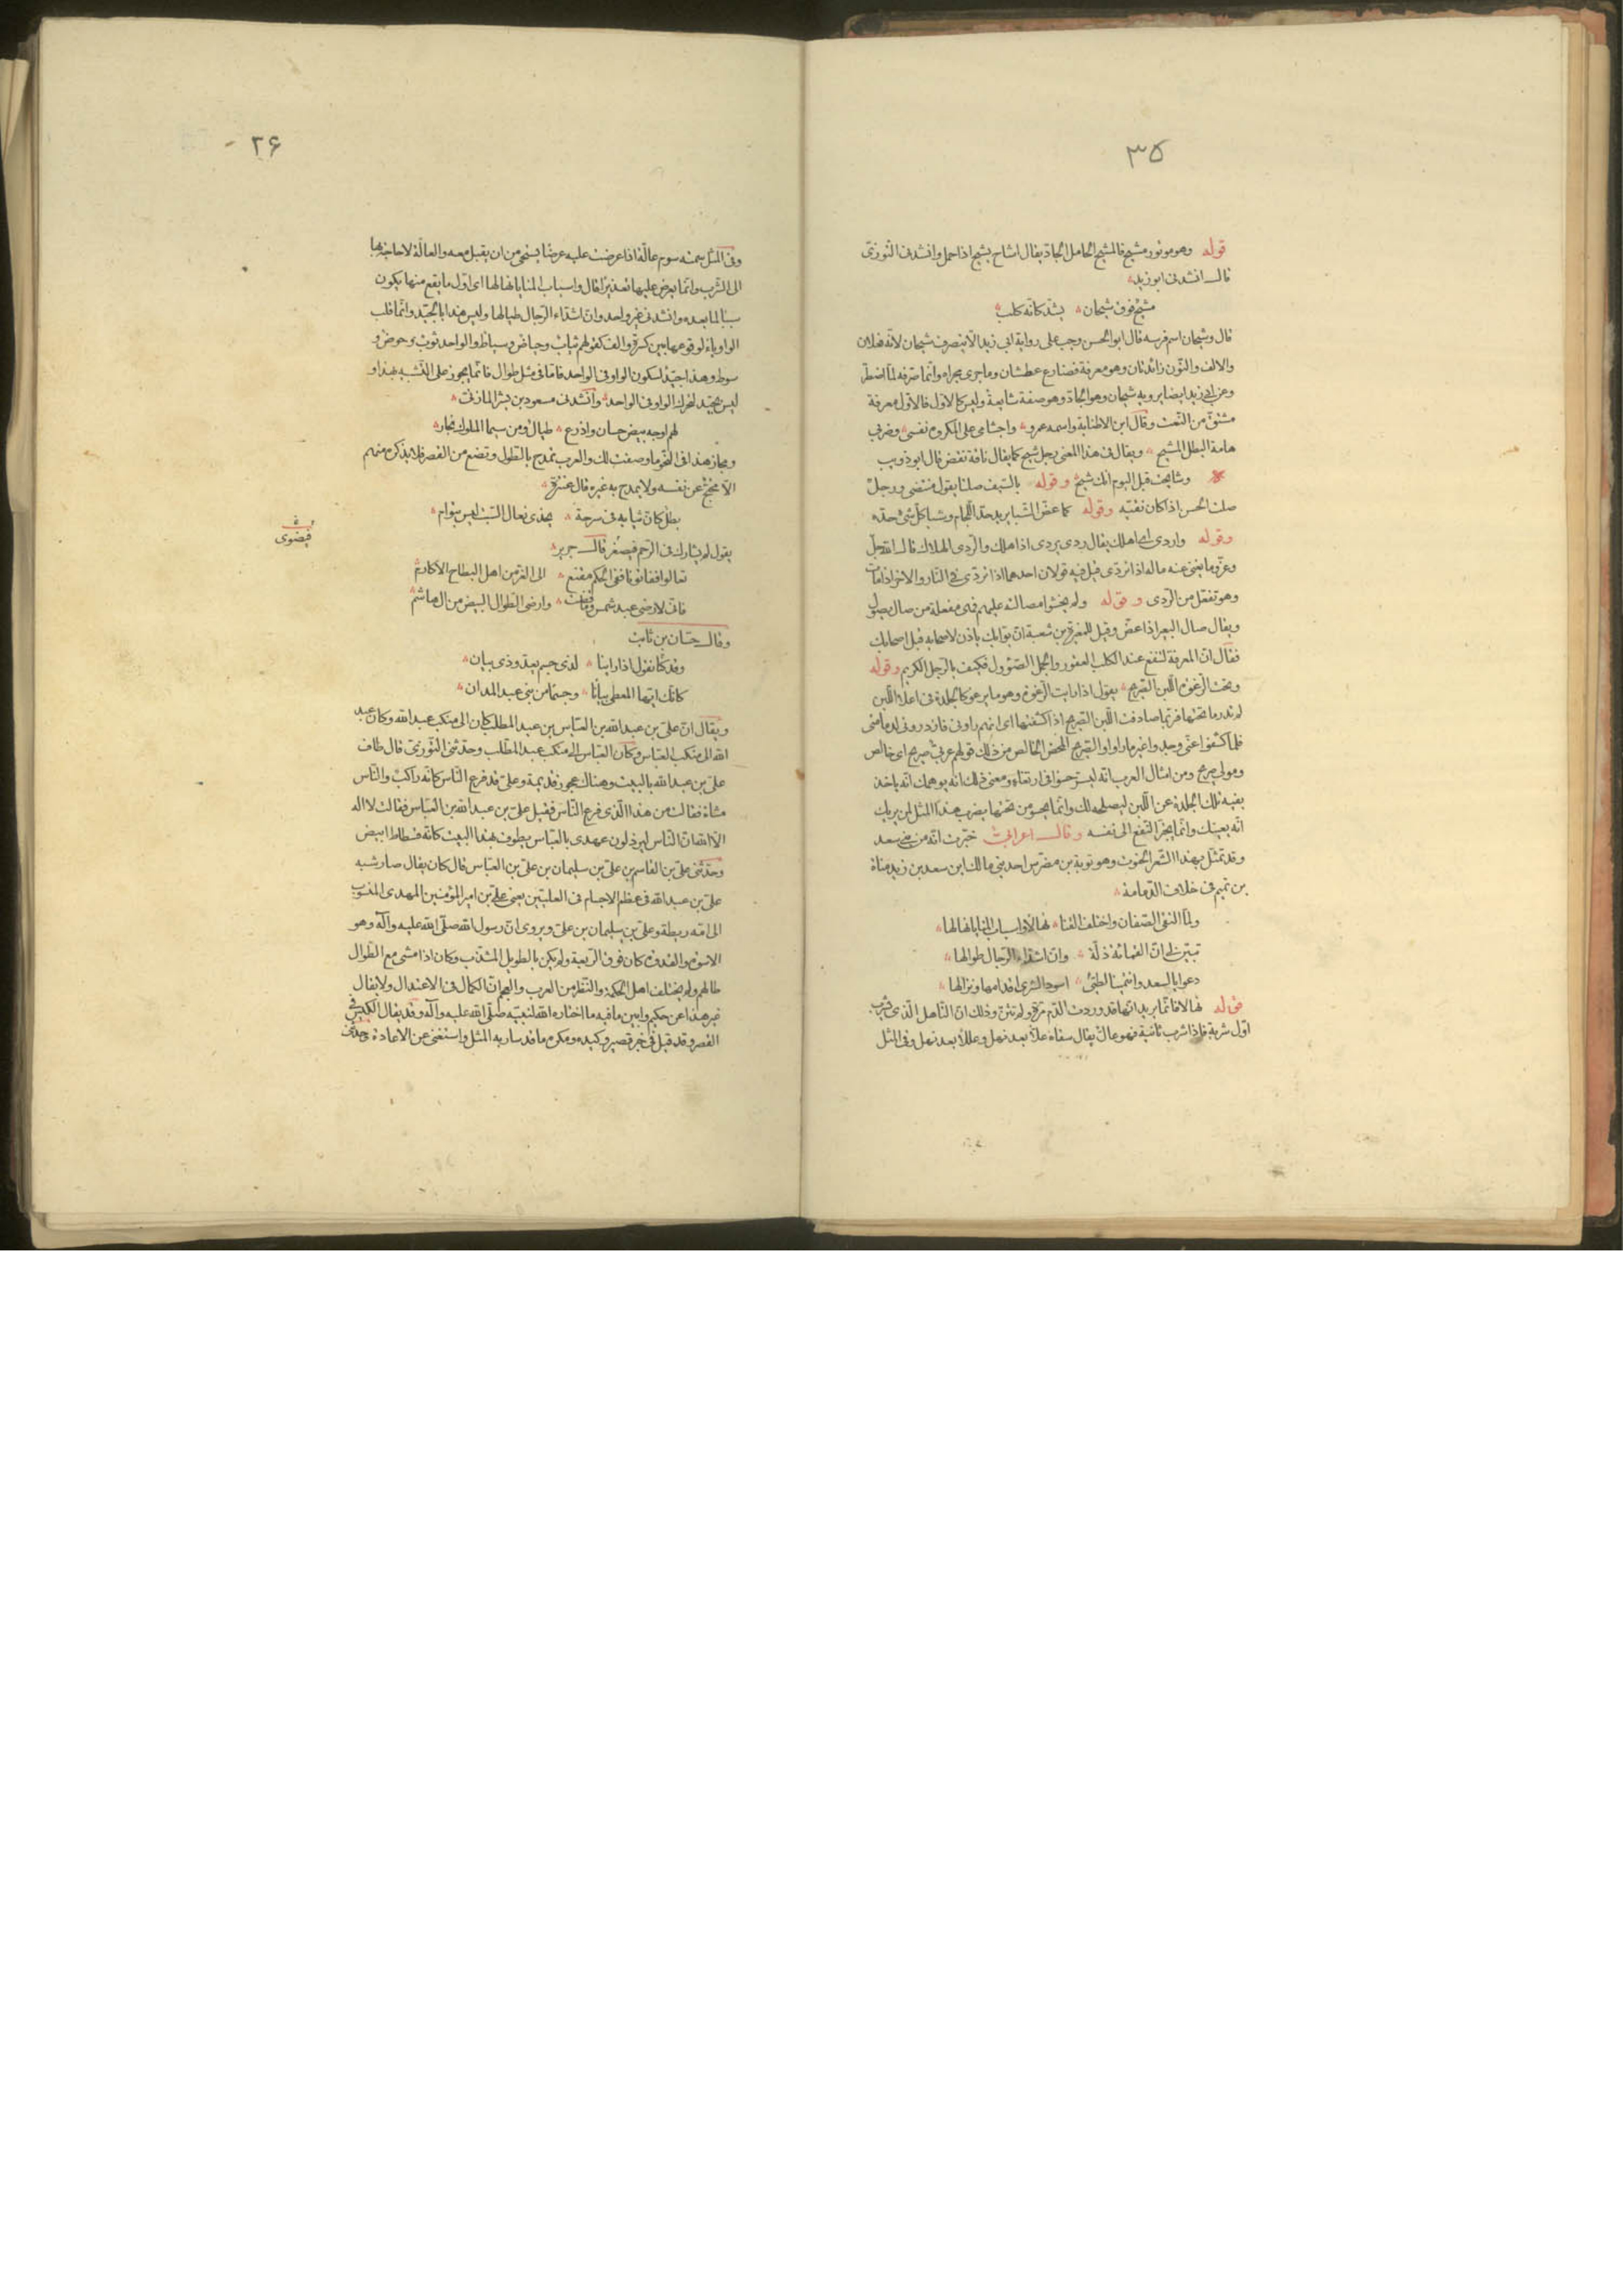 ۳۵
قوله وهو موتور مشيح فالمشيح الحامل الجادّ يقال اشاح يشيح اذا حمل وانشدنى التّوزىّ
قال انشدنى ابو زيد
مشيح فوق شيحان يشدّ كانّه كلب
قال وشيحان اسم فرسه قال ابو الحسن وجب على رواية ابى زيد الّا ينصرف شيحان لانّه فعلان
والالف والنّون زائدتان وهو معرفة فضارع عطشان وما جرى مجراه وانّما صرفه لمّا اضطرّ
وعن ابى زيد ايضا يرويه شيحان وهو الجادّ وهو صفة شايعة وليس كالاوّل فالاوّل معرفة
مشتقّ من النّعت وقال ابن الاطنابة واسمه عمرو واجشامى على المكروه نفسى وضربى
هامة البطل المشيح ويقال فى هذا المعنى رجل شيح كما يقال ناقة نقض قال ابو ذويب
وشايحت قبل اليوم انّك شيح وقوله بالسّيف صلتا يقول منتضى ورجل
صلت الحسن اذا كان نقيّه وقوله كما عضّ الشّبا يريد حدّ اللّجام وشبا كلّ شئ حدّه
وقوله واردى اى اهلك يقال ردى يردى اذا هلك والرّدى الهلاك قال الله جلّ
وعزّ وما يغنى عنه ماله اذا تردّى قيل فيه قولان احدهما اذا تردّى فى النّار والاخر اذا مات
وهو تفعّل من الرّدى وقوله ولم يخشوا مصالته عليهم فهى مفعلة من صال يصول
ويقال صال البعير اذا عضّ وقيل للمغيرة بن شعبة انّ بوّابك ياذن لاصحابه قبل اصحابك
فقال انّ المعرفة لتنفع عند الكلب العقور والجمل الصّئول فكيف بالرّجل الكريم وقوله
وتحت الرّغوة اللّبن الصّريح يقول اذا رايت الرّغوة وهو ما يرغو كالجلدة فى اعلا اللّبن
لم تدر ما تحتها فربّما صادفت اللّبن الصّريح اذا كشفتها اى انهم راونى فازدرونى لدمامتى
فلما كشفوا عنّى وجدوا غير ما راوا والصّريح المحض الخالص من ذلك قولهم عربىّ صريح اى خالص
ومولى صريح ومن امثال العرب انّه ليسرّ حسوا فى ارتغاء ومعنى ذلك انّه يوهمك انّه ياخذ
بفيه تلك الجلدة عن اللّبن ليصلحه لك وانّما يحسو من تحتها يضرب هذا المثل لمن يريك
انّه يعينك وانّما يجرّ النّفع الى نفسه وقال اعرابىّ خبّرت انّه من بنى سعد
وقد تمثّل بهذا الشّعر الخنوت وهو توبة بن مضرّس احد بنى مالك ابن سعد بن زيد مناة
بن تميم فى خلاف الدّمامة
ولمّا التقى الصّفان واختلف القنا نهالا واسباب المنايا نهالها
تبيّن لى انّ القماءة ذلّة وانّ اشدّاء الرّجال طوالها
دعوا يال سعد وانتمينا لطيّئ اسود الشّرى اقدامها ونزالها
قوله نهالا فانّما يريد انّها قد وردت الدّم مرّة ولم تثن وذلك انّ النّاهل الّذى يشرب
اوّل شربة فاذا شرب ثانية فهو عالّ يقال سقاه علّا بعد نهل وعللا بعد نهل وفى المثل
۳۶
وفى المثل سمته سوم عالّة اذا عرضت عليه عرضا يستحى من ان يقبل معه والعالّة لا حاجة بها
الى الشّرب وانّما يعرض عليها تعذيرا قال واسباب المنايا نهالها اى اوّل ما يقع منها يكون
سببا لما بعده وانشدنى غير واحد وانّ اشدّاء الرّجال طيالها وليس هذا بالجيّد وانّما قلب
الواو ياء لوقوعها بين كسرة والف كقولهم ثياب وحياض وسياط والواحد ثوب وحوض و
سوط وهذا جيّد لسكون الواو فى الواحد فامّا فى مثل طوال فانّما يجوز على التّشبيه بهذا و
ليس بجيّد لتحرّك الواو فى الواحد وانشدنى مسعود بن بشر المازنىّ
لهم اوجه بيض حسان واذرع طيال ومن سيما الملوك نجار
ومجاز هذا فى النّحو ما وصفت لك والعرب تمدح بالطّول وتضع من القصر فلا يذكره منهم
الّا محتجّ عن نفسه ولا يمدح به غيره قال عنترة
بطل كانّ ثيابه فى سرحة يحذى نعال السّبت ليس بتوام
يقول لم يشارك فى الرّحم فيصغر قال جرير
تعالوا ففاتونا ففى الحكم مقنع الى الغرّ من اهل البطاح الاكارم
فانّى لارضى عبد شمس وما قضت وارضى الطّوال البيض من ال هاشم
وقال حسّان بن ثابت
وقد كنّا نقول اذا راينا لذى جسم يعدّ وذى بيان
كانّك ايّها المعطى بيانا وجسما من بنى عبد المدان
ويقال انّ علىّ بن عبد الله بن العبّاس بن عبد المطلب كان الى منكب عبد الله وكان عبد
الله الى منكب العبّاس وكان العبّاس الى منكب عبد المطّلب وحدّثنى التّوزىّ قال طاف
علىّ بن عبد الله بالبيت وهناك عجوز قديمة وعلىّ قد فرع النّاس كانّه راكب والنّاس
مشاة فقالت من هذا الّذى فرع النّاس فقيل علىّ بن عبد الله بن العبّاس فقالت لا اله
الّا الله انّ النّاس ليرذلون عهدى بالعبّاس يطوف بهذا البيت كانّه فسطاط ابيض
وحدّثنى علىّ بن القاسم بن علىّ بن سليمان بن علىّ بن العباس قال كان يقال صار شبه
علىّ بن عبد الله فى عظم الاجسام فى العليّين يعنى علىّ بن امير المؤمنين المهدى المنسوب
الى امّه ريطة وعلىّ بن سليمان بن علىّ ويروى انّ رسول الله صلّى الله عليه وآله وهو
الاسوة والقدوة كان فوق الرّبعة ولم يكن بالطويل المشذّب وكان اذا مشى مع الطّوال
طالهم ولم يختلف اهل الحكمة والنّظر من العرب والعجم انّ الكمال فى الاعتدال ولا يقال
غير هذا عن حكيم وابين ما فيه ما اختاره الله لنبيّه صلّى الله عليه وآله وقد يقال الكيس فى
القصر وقد قيل فى خبر قصير وكيده ومكره ما قد سار به المثل واستغنى عن الاعادة حدّثنى